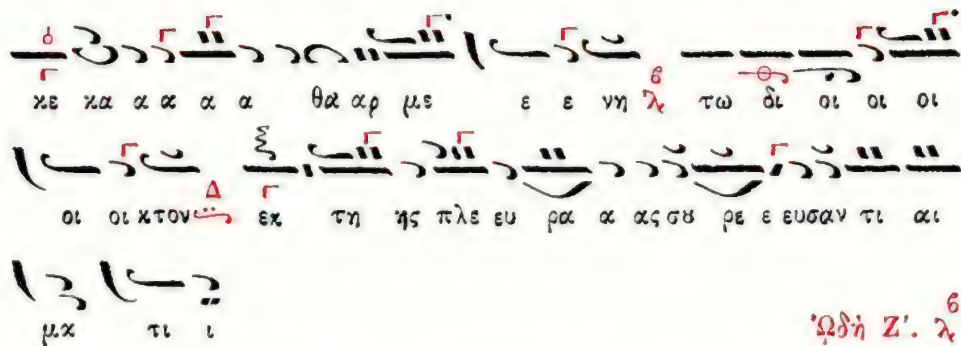 κε κα α α α α θα αρ με ε ε νη λ̇ τω δι οι οι οι οι
οι οι κτον Δ εκ τη ης πλε ευ ρα α ας σου ρε ε ευσαν τι αι
μα τι ι
Ὠδὴ Ζ΄.